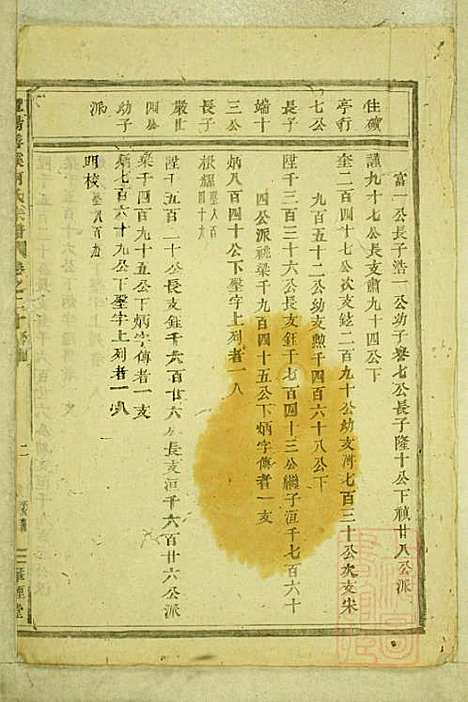 住礦
亭行
七公
長子
端十
三公
長子
嚴世
四公
幼子
派
富一公長子浩一公幼子譽七公長子隆十公下禎廿八公派
謹九十七公長支肅九十四公下
奎二百四十七公次支鉉二百九十公幼支濟七百三十公次支朱
九百五十二公幼支勲千四百六十八公下
陞千三百三十六公長支鈺千七百四十三公繼子洹千七百六十
四公派祧梁千九百四十五公下炳字傳者一支
炳八百四十公下堃字上列者一八
根輝堃八百四十九
陞千五百二十二公長支鈺千六百廿六公長支洹千六百廿六公派
梁千四百九十五公下炳字傳者一支
炳七百六十九公下堃字上列者一八
明校堃八百九
氏宗譜 卷之二十
二
堂